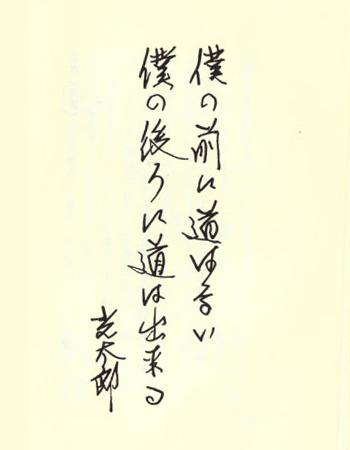 僕の前に道はない
僕の後ろに道は出来る
光太郎